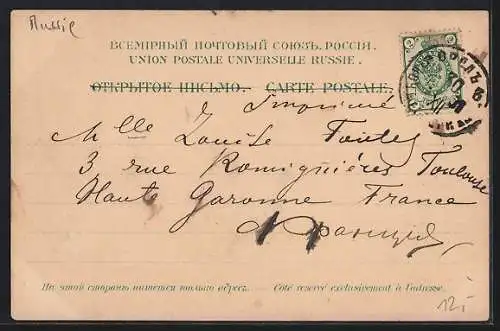 Russie
ВСЕМІРНЫЙ ПОЧТОВЫЙ СОЮЗЪ. РОССІЯ.
UNION POSTALE UNIVERSELLE RUSSIE.
ОТКРЫТОЕ ПИСЬМО. — CARTE POSTALE.
Imprimé
Mlle Louise
3 rue Romiguières Toulouse
Haute Garonne France
Франція
На этой сторонѣ пишется только адресъ. — Côté réservé exclusivement à l'adresse.
12,-